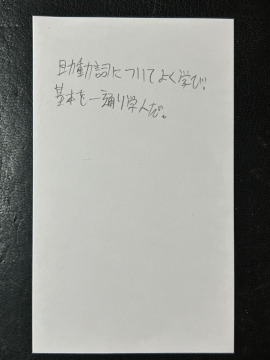 助動詞についてよく学び、
基本を一通り学んだ。